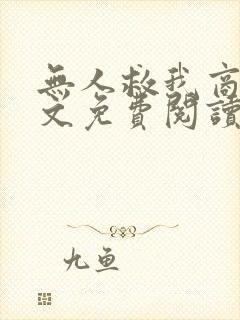 無人救我高
文免費閱讀
九鱼